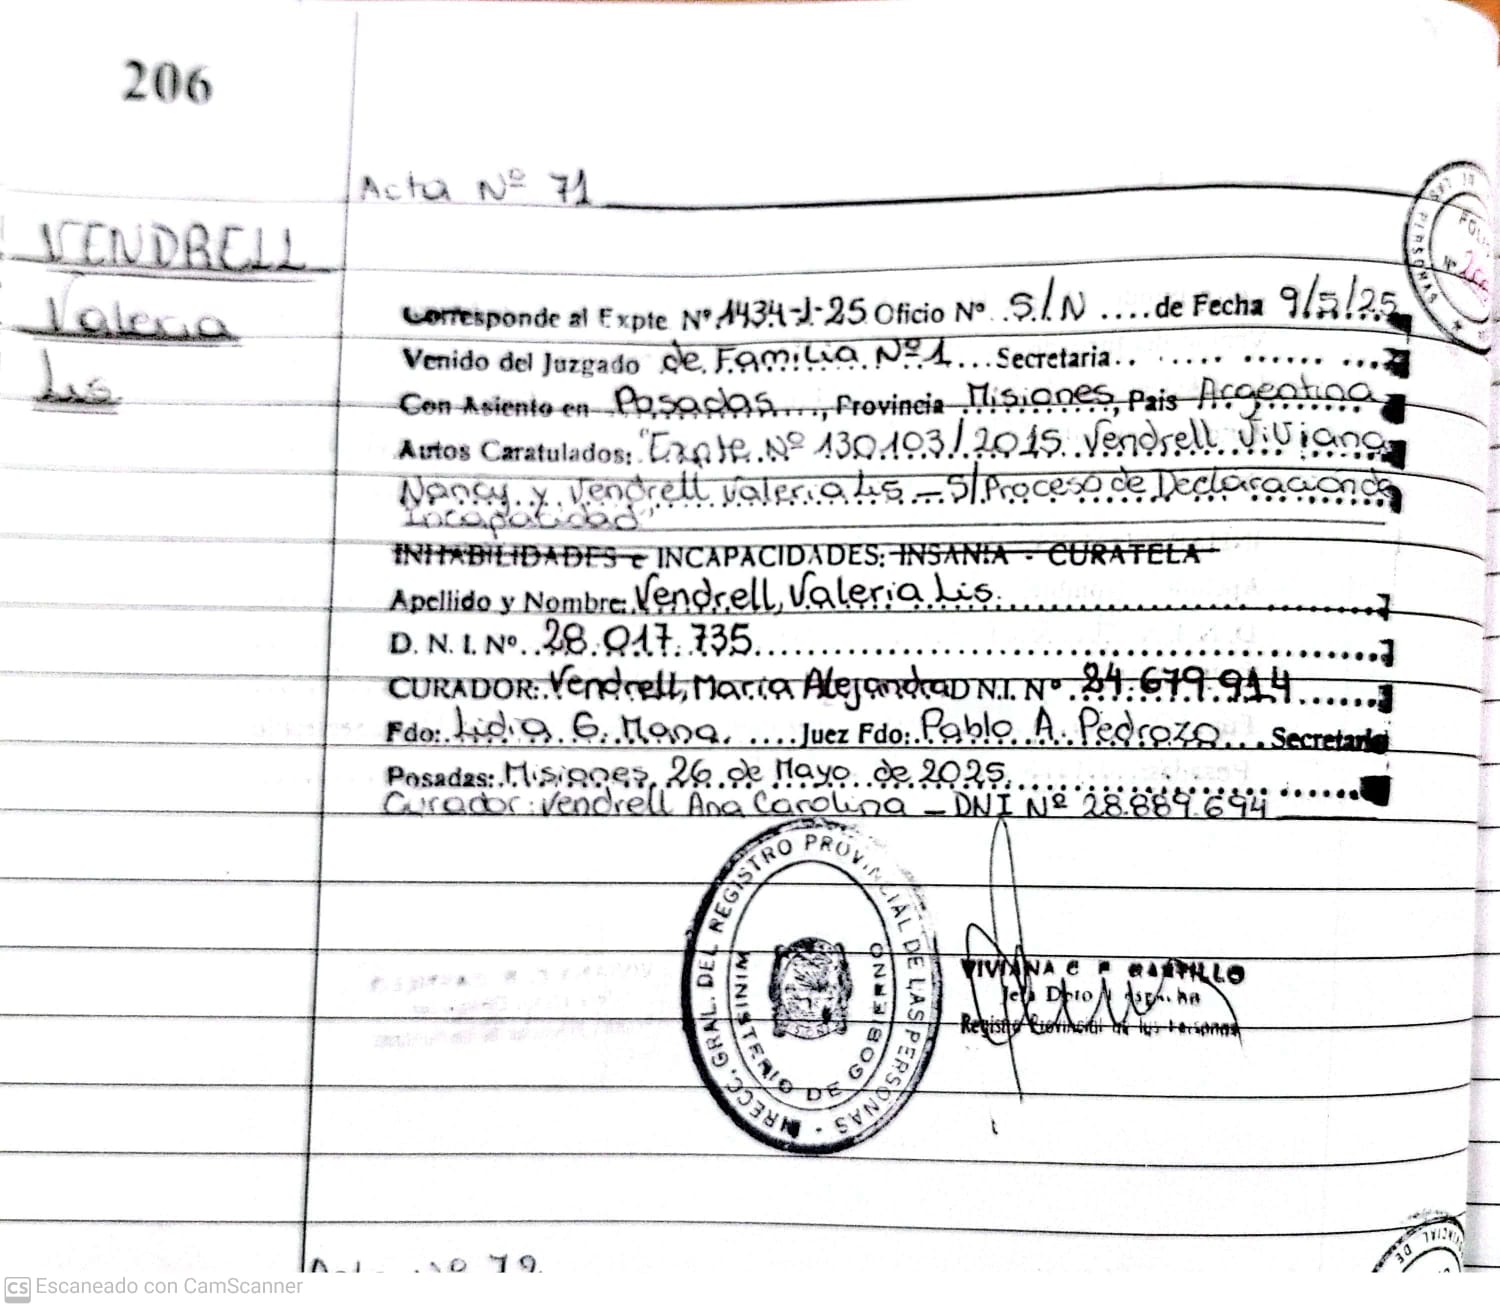 206
Acta Nº 71
VENDRELL
Valeria
Lis
Corresponde al Expte Nº 1434-J-25 Oficio Nº S/N .... de Fecha 9/5/25
Venido del Juzgado de Familia Nº1 ... Secretaria
Con Asiento en Posadas ...., Provincia Misiones, Pais Argentina
Autos Caratulados: "Expte Nº 130.103/2015 Vendrell Viviana
Nancy y Vendrell Valeria Lis – S/Proceso de Declaración de
Incapacidad"
INHABILIDADES e INCAPACIDADES: INSANIA - CURATELA
Apellido y Nombre: Vendrell, Valeria Lis.
D. N. I. Nº 28.017.735
CURADOR: Vendrell, Maria Alejandra D N.I. Nº 24.679.914
Fdo: Lidia G. Mana. .... Juez Fdo: Pablo A. Pedrozo... Secretario
Posadas: Misiones, 26 de Mayo de 2025.
Curador: Vendrell Ana Carolina – DNI Nº 28.889.694
DIRECC. GRAL. DEL REGISTRO PROVINCIAL DE LAS PERSONAS
MINISTERIO DE GOBIERNO
VIVIANA C CASTILLO
Jefa Dpto
Registro Provincial de las Personas
Acta Nº 72
CS Escaneado con CamScanner